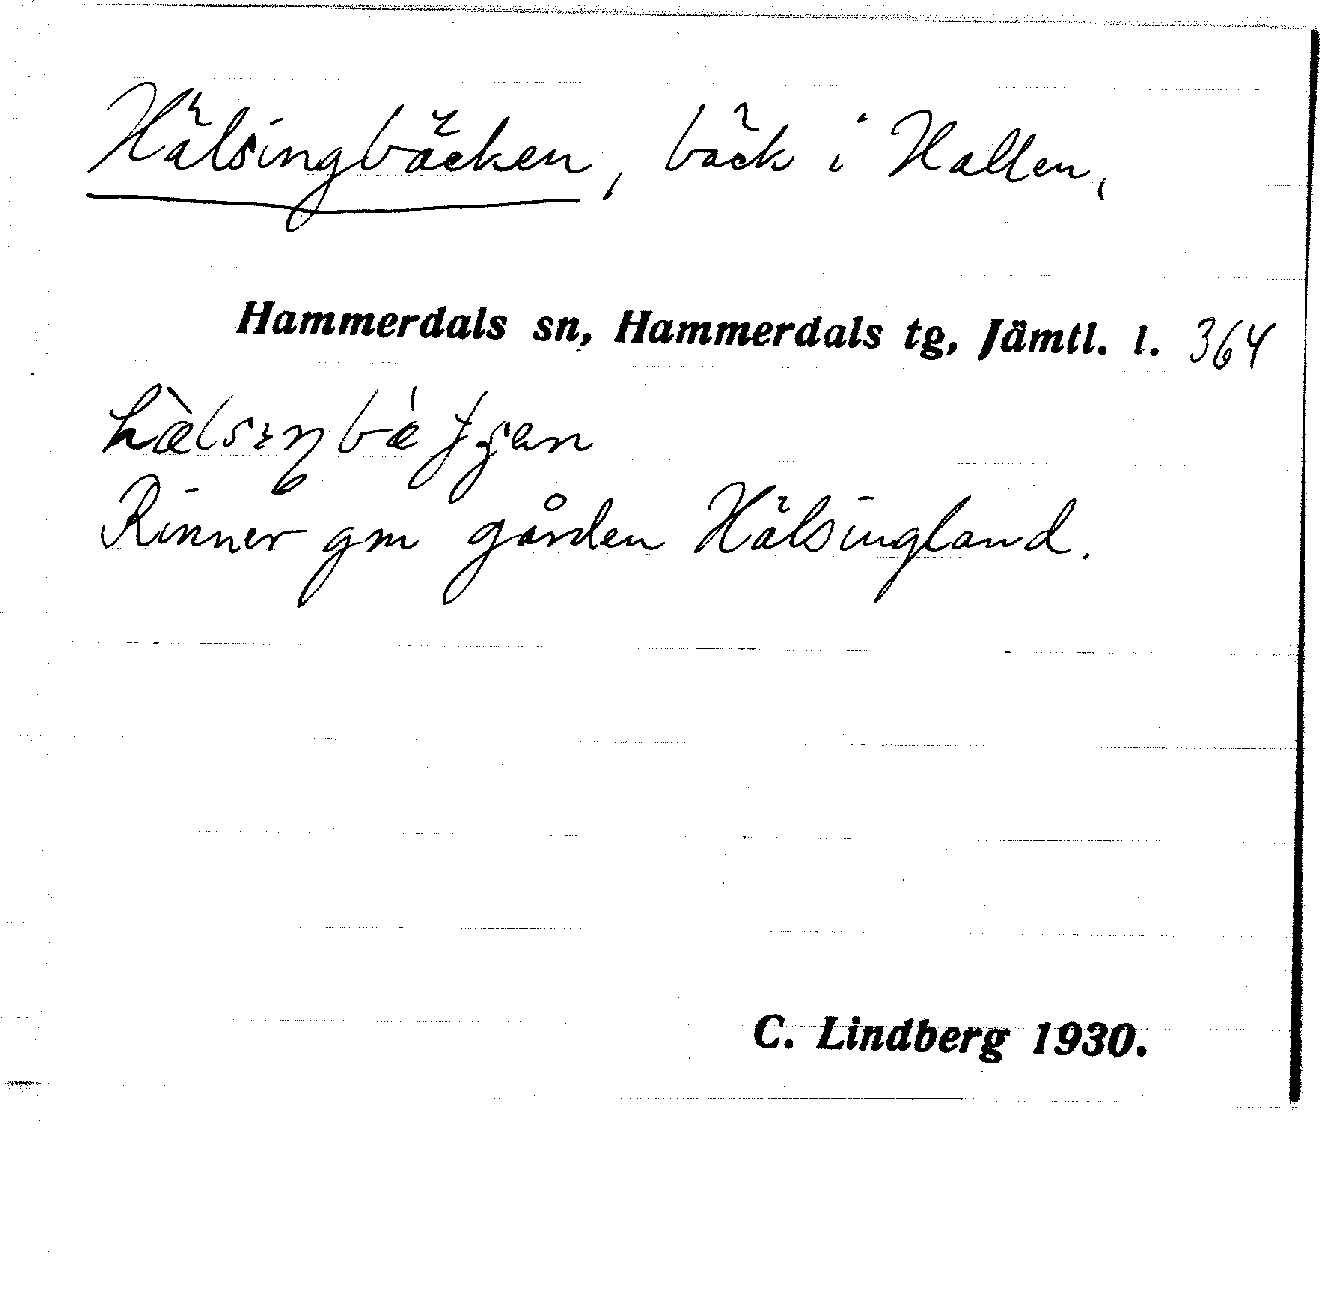 Hälsingbäcken, bäck i Hallen,
Hammerdals sn, Hammerdals tg, Jämtl. l. 364
Rinner gm gården Hälsingland.
C. Lindberg 1930.